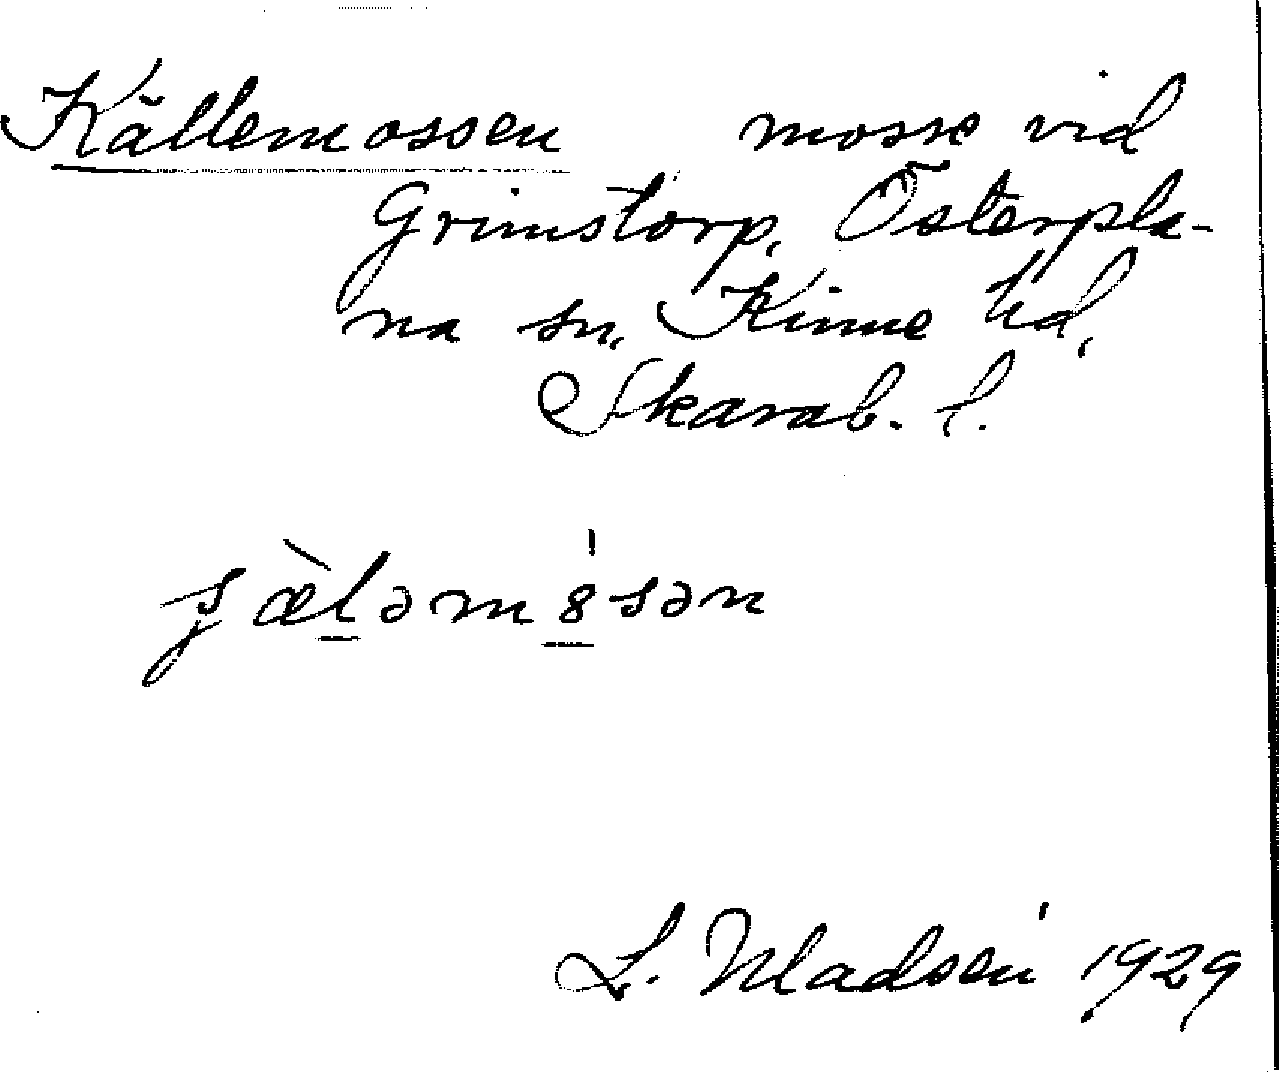 Källemossen mosse vid
Grimstorp, Österpla-
na sn, Kinne hd,
Skarab. l.
ʂæ̀l̠əm8̠́sən
L. Madsén 1929